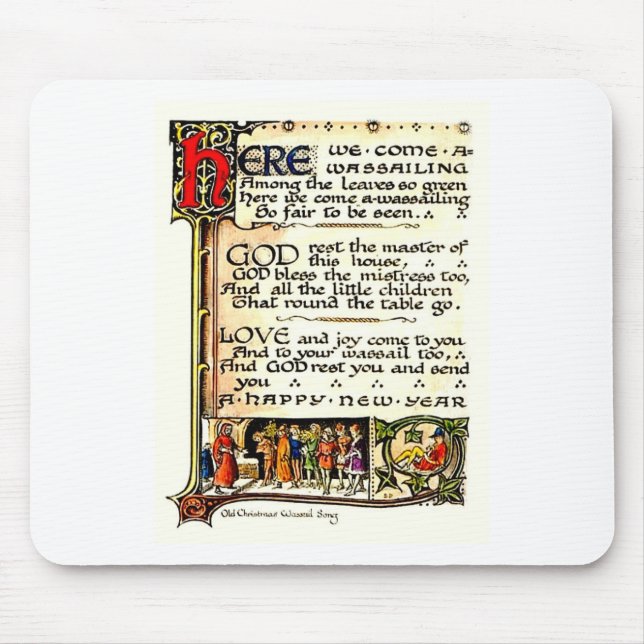 HERE WE · COME · A-
WASSAILING
Among the leaves so green
Here we come a-wassailing
So fair to be seen..
GOD rest the master of
this house,
GOD bless the mistress too,
And all the little children
That round the table go.
LOVE and joy come to you
And to your wassail too,
And GOD rest you and send
you
A · HAPPY · NEW · YEAR
Old Christmas Wassail Song